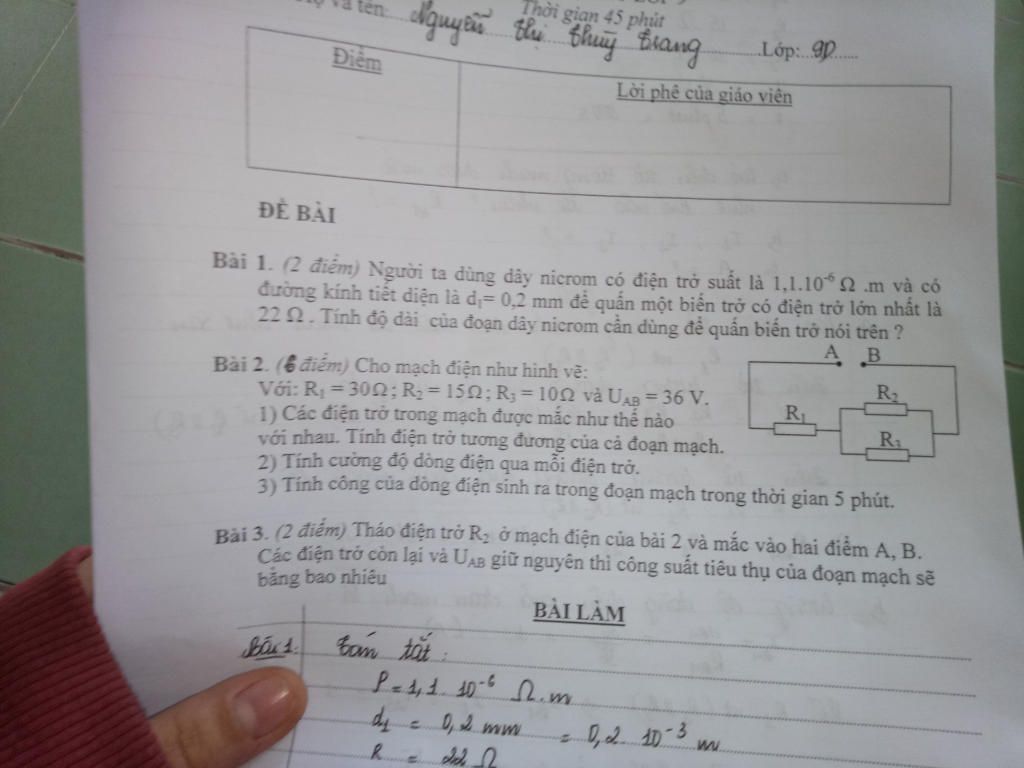 ọ và tên: Nguyễn thị thuỳ trang Lớp: 9D
Thời gian 45 phút
Điểm
Lời phê của giáo viên
ĐỀ BÀI
Bài 1. (2 điểm) Người ta dùng dây nicrom có điện trở suất là 1,1.10⁻⁶ Ω .m và có
đường kính tiết diện là d₁= 0,2 mm để quấn một biến trở có điện trở lớn nhất là
22 Ω . Tính độ dài của đoạn dây nicrom cần dùng để quấn biến trở nói trên ?
Bài 2. (6 điểm) Cho mạch điện như hình vẽ:
Với: R₁ = 30Ω ; R₂ = 15Ω ; R₃ = 10Ω và U_AB = 36 V.
1) Các điện trở trong mạch được mắc như thế nào
với nhau. Tính điện trở tương đương của cả đoạn mạch.
2) Tính cường độ dòng điện qua mỗi điện trở.
3) Tính công của dòng điện sinh ra trong đoạn mạch trong thời gian 5 phút.
A B
R₂
R₁
R₃
Bài 3. (2 điểm) Tháo điện trở R₂ ở mạch điện của bài 2 và mắc vào hai điểm A, B.
Các điện trở còn lại và U_AB giữ nguyên thì công suất tiêu thụ của đoạn mạch sẽ
bằng bao nhiêu
BÀI LÀM
Bài 1: tóm tắt :
ρ = 1,1 . 10⁻⁶ Ω.m
d₁ = 0,2 mm = 0,2 . 10⁻³ m
R = 22 Ω